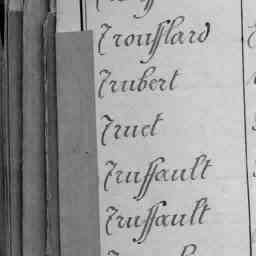 Trousslard
Trubert
Truet
Truffault
Truffault